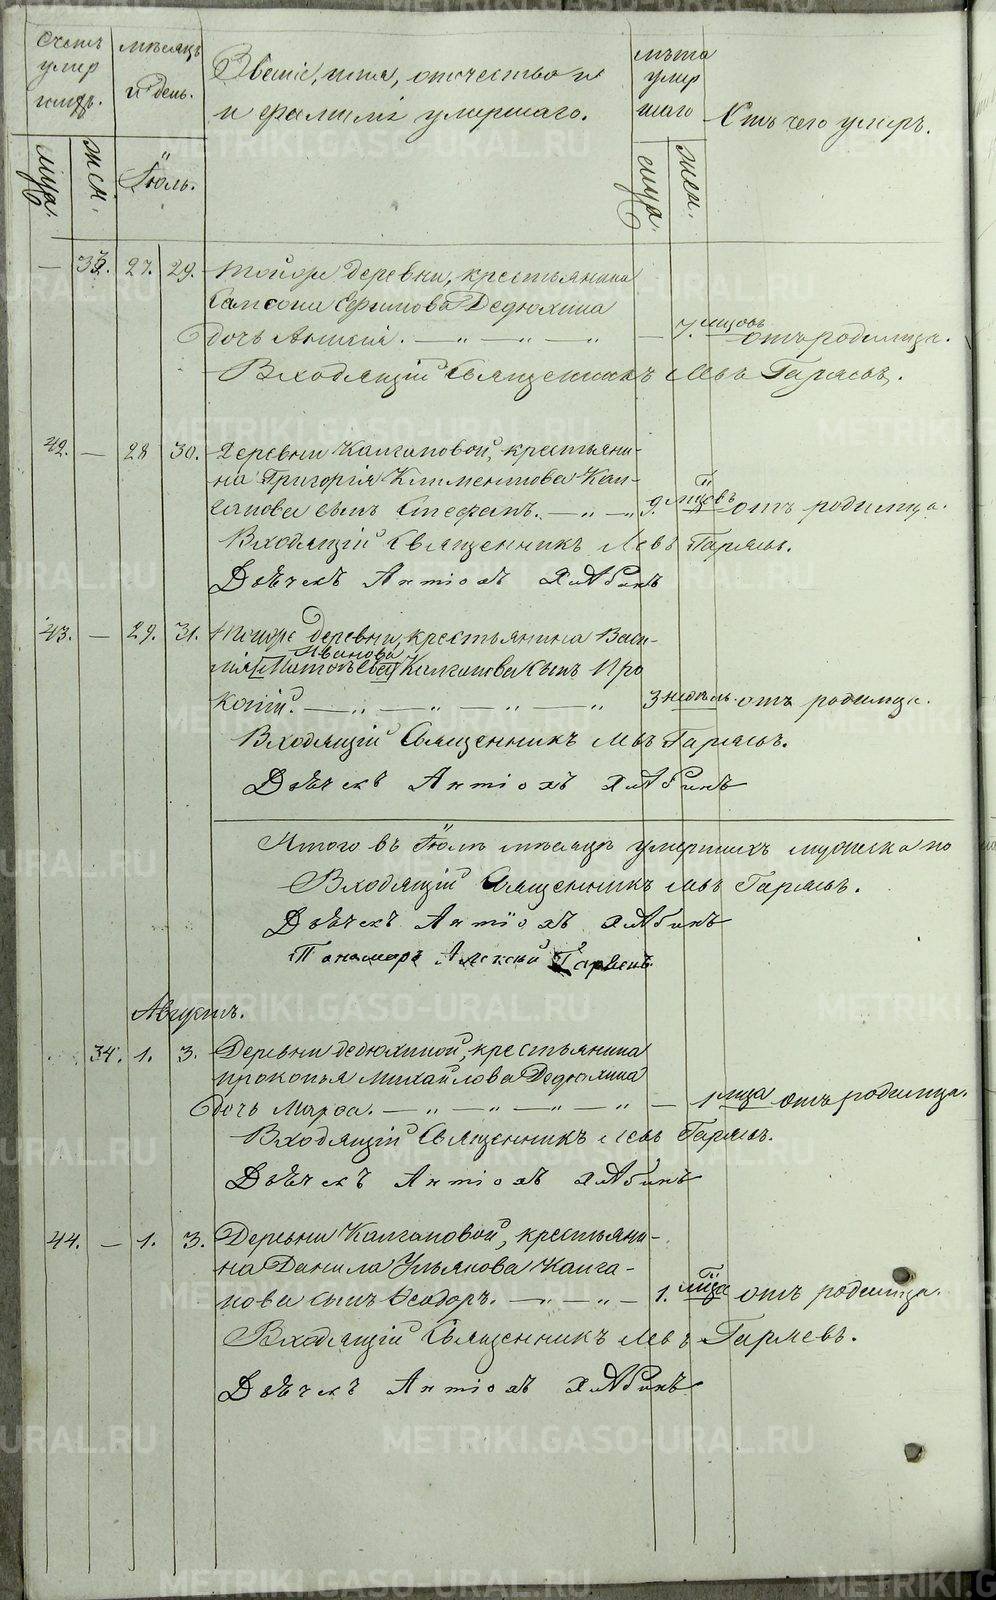 Счетъ умер шихъ.
муж.
жен.
Мѣсяцъ и день.
Іюль.
Званіе, имя, отчество и
и фамилія умершаго.
лѣта умер шаго
муж.
жен.
Отъ чего умеръ.
— 33. 27. 29. тойже деревни, крестьянина
Самсона Ефимова Дедюхина
дочь Анисія. — „ — „ — „ — 7. мѣсцовъ отъ родимца.
Входящій Священникъ Левъ Гаряевъ.
42. — 28 30. Деревни Калгановой, крестьяни-
на Григорія Климентова Кал-
ганова сынъ Стефанъ. — „ — „ 9. мѣсцовъ отъ родимца.
Входящій Священникъ Левъ Гаряевъ.
Дьячекъ Антіохъ
43. — 29. 31. Тойже деревни, крестьянина Васи-
Иванова
лія Калганова сынъ Про
копій. — „ — „ — „ — „ 3 недѣль отъ родимца.
Входящій Священникъ Левъ Гаряевъ.
Дьячекъ Антіохъ
Итого въ Іюлѣ мѣсяцѣ умершихъ мужеска по
Входящій Священникъ Левъ Гаряевъ.
Дьячекъ Антіохъ
Пономарь Алексѣй
Августъ.
34. 1. 3. Деревни Дедюхиной, крестьянина
Прокопья Михайлова Дедюхина
дочь Марѳа. — „ — „ — „ — „ — 1 мѣсца отъ родимца.
Входящій Священникъ Левъ Гаряевъ.
Дьячекъ Антіохъ
44. — 1. 3. Деревни Калгановой, крестьяни-
на Данила Ульянова Калга-
нова сынъ Ѳеодоръ. — „ — „ — 1. мѣсца отъ родимца.
Входящій Священникъ Левъ Гаряевъ.
Дьячекъ Антіохъ
METRIKI.GASO-URAL.RU